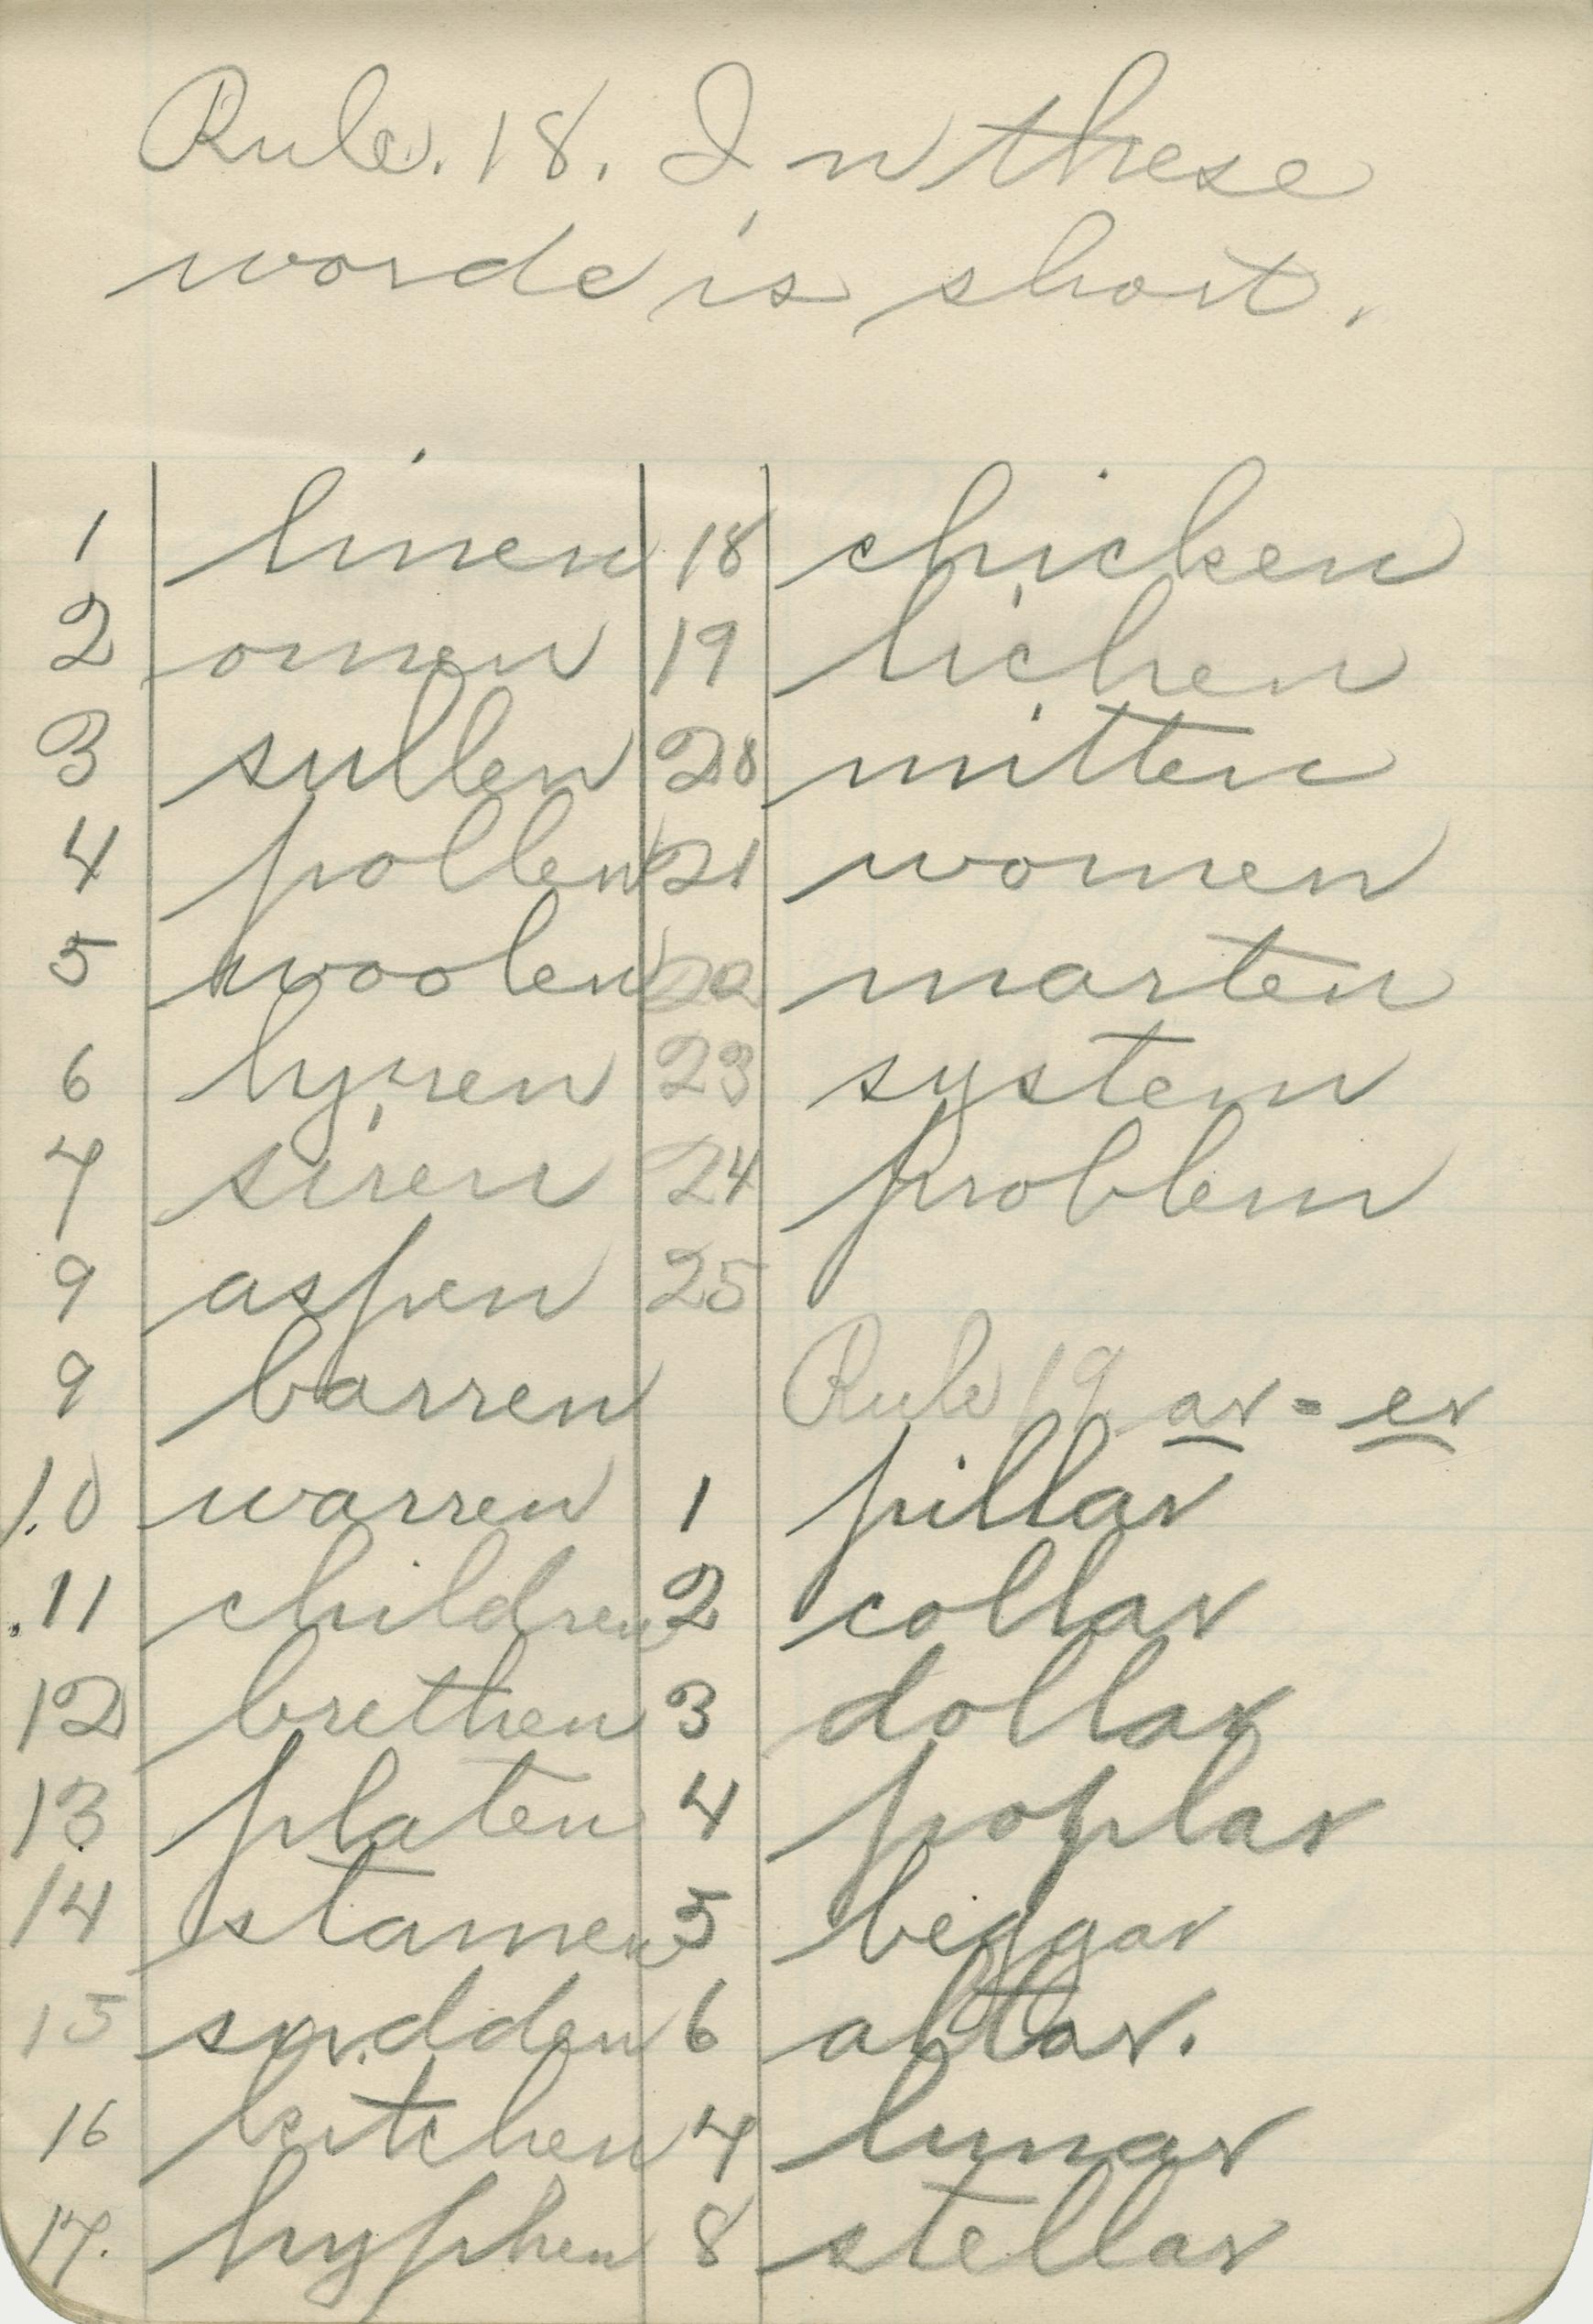 Rule. 18. In these
words is short.
1 linen 18 chicken
2 omen 19 lichen
3 sullen 20 mitten
4 pollen 21 women
5 woolen 22 marten
6 23 system
7 siren 24 problem
9 aspen 25
9 barren Rule 19 ar = er
10 warren 1 pillar
11 children 2 collar
12 brethen 3 dollar
13 platen 4 poplar
14 stamen 5 beggar
15 sudden 6 altar.
16 kitchen 7 lunar
17. hyphen 8 stellar